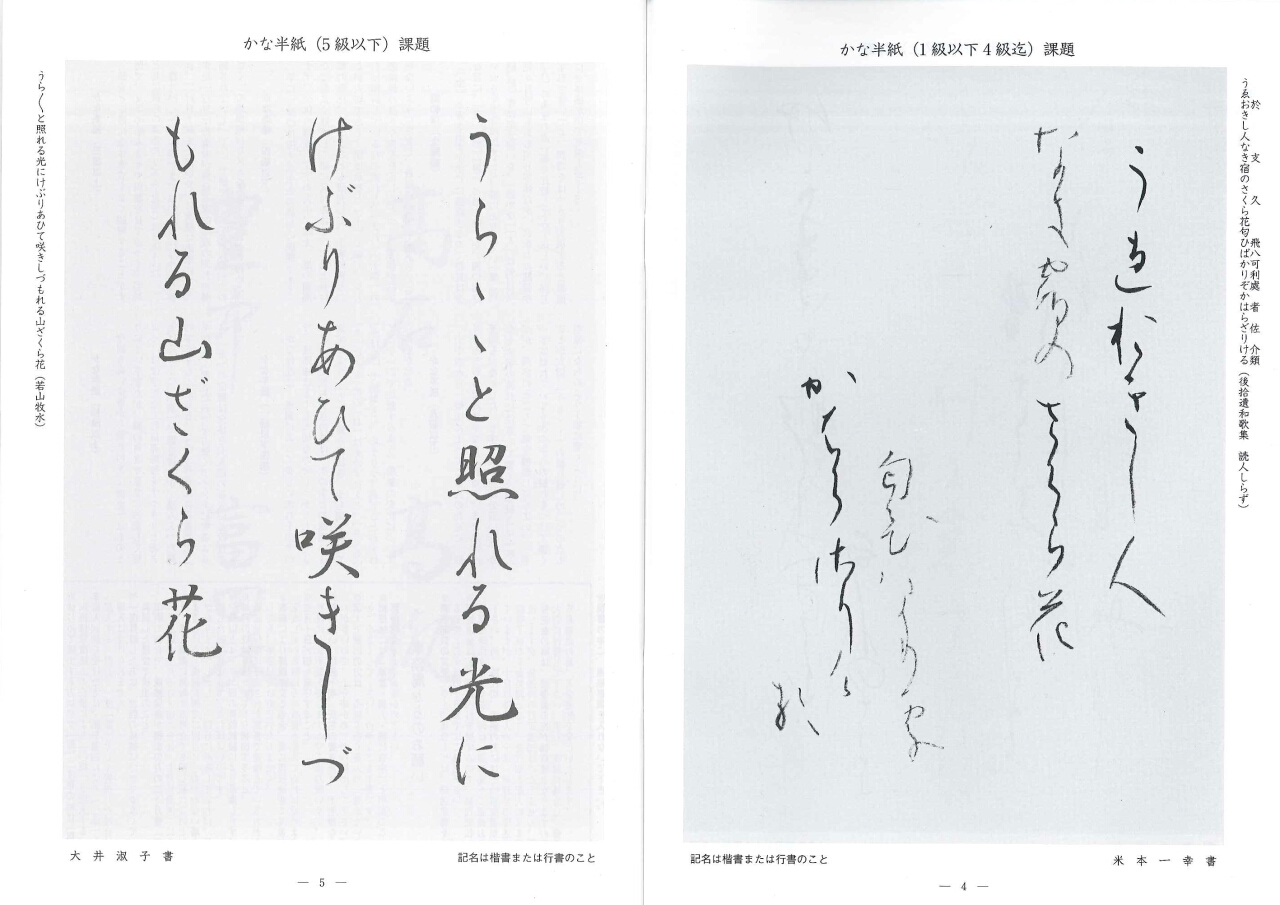 かな半紙（1級以下4級迄）課題
於　支　久　飛八可利處　者　佐　介類
うゑおきし人なき宿のさくら花匂ひばかりぞかはらざりける（後拾遺和歌集　読人しらず）
う恵於支し人
なき宿の佐久ら花
匂飛八可利處
か者ら佐りけ
類
記名は楷書または行書のこと
米本一幸書
― 4 ―
かな半紙（5級以下）課題
うらゝゝと照れる光に
けぶりあひて咲きしづ
もれる山ざくら花
うら〱と照れる光にけぶりあひて咲きしづもれる山ざくら花（若山牧水）
大井淑子書
記名は楷書または行書のこと
― 5 ―